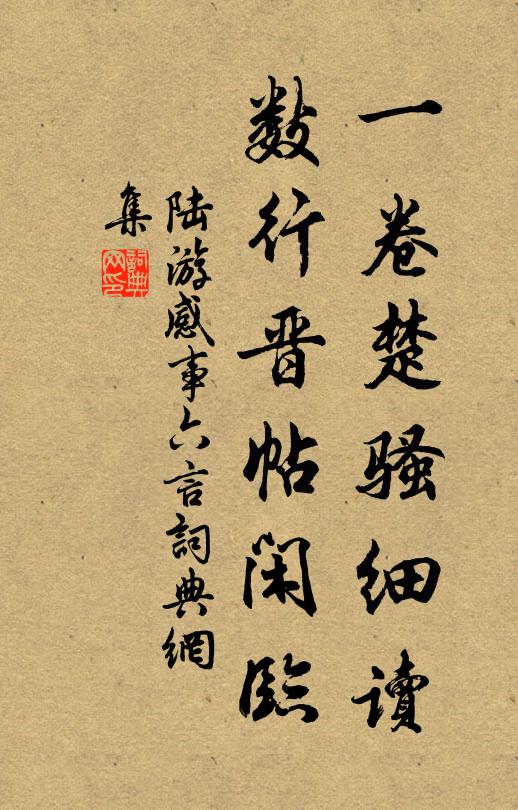 一卷楚骚细读
数行晋帖闲临
陆游感事六言詞典網
集
詞典
网印